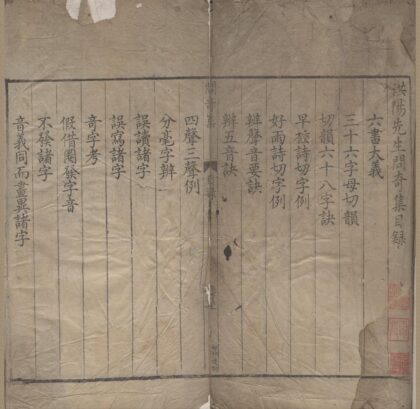 洪陽先生問奇集目錄
六書大義
三十六字母切韻
切韻六十八字訣
早梅詩切字例
好雨詩切字例
辯聲音要訣
辨五音訣
四聲三聲例
分毫字辨
誤讀諸字
誤寫諸字
奇字考
假借圈發字音
不發諸字
音義同而畫異諸字